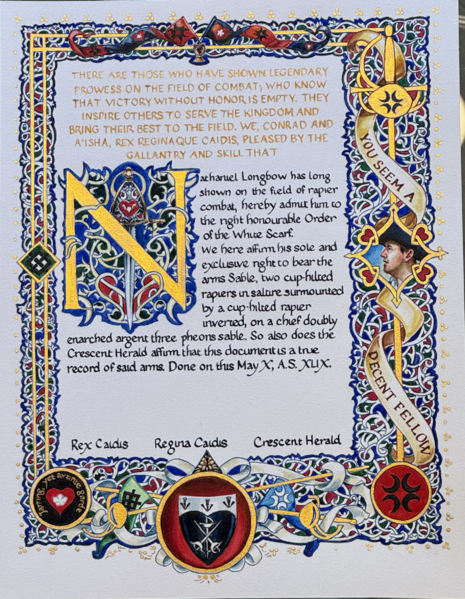 THERE ARE THOSE WHO HAVE SHOWN LEGENDARY
PROWESS ON THE FIELD OF COMBAT; WHO KNOW
THAT VICTORY WITHOUT HONOR IS EMPTY. THEY
INSPIRE OTHERS TO SERVE THE KINGDOM AND
BRING THEIR BEST TO THE FIELD. WE, CONRAD AND
A'ISHA, REX REGINAQUE CAIDIS, PLEASED BY THE
GALLANTRY AND SKILL THAT
Nathaniel Longbow has long
shown on the field of rapier
combat, hereby admit him to
the right honourable Order
of the White Scarf.
We here affirm his sole and
exclusive right to bear the
arms Sable, two cup-hilted
rapiers in saltire surmounted
by a cup-hilted rapier
inverted, on a chief doubly
enarched argent three pheons sable. So also does the
Crescent Herald affirm that this document is a true
record of said arms. Done on this May X, A.S. XLIX.
Rex Caidis Regina Caidis Crescent Herald
YOU SEEM A
DECENT FELLOW
yet avante garde